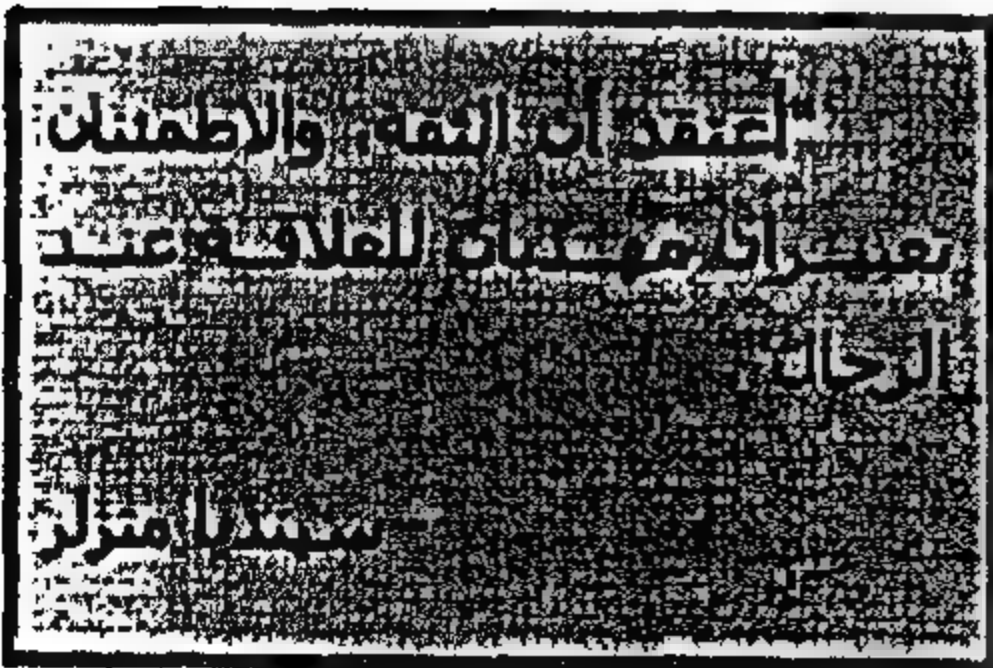 "أعتقد أن الثقة، والاطمئنان
يعتبران مهمتان للعلاقة عند
الرجال
- سينديا ميزلر